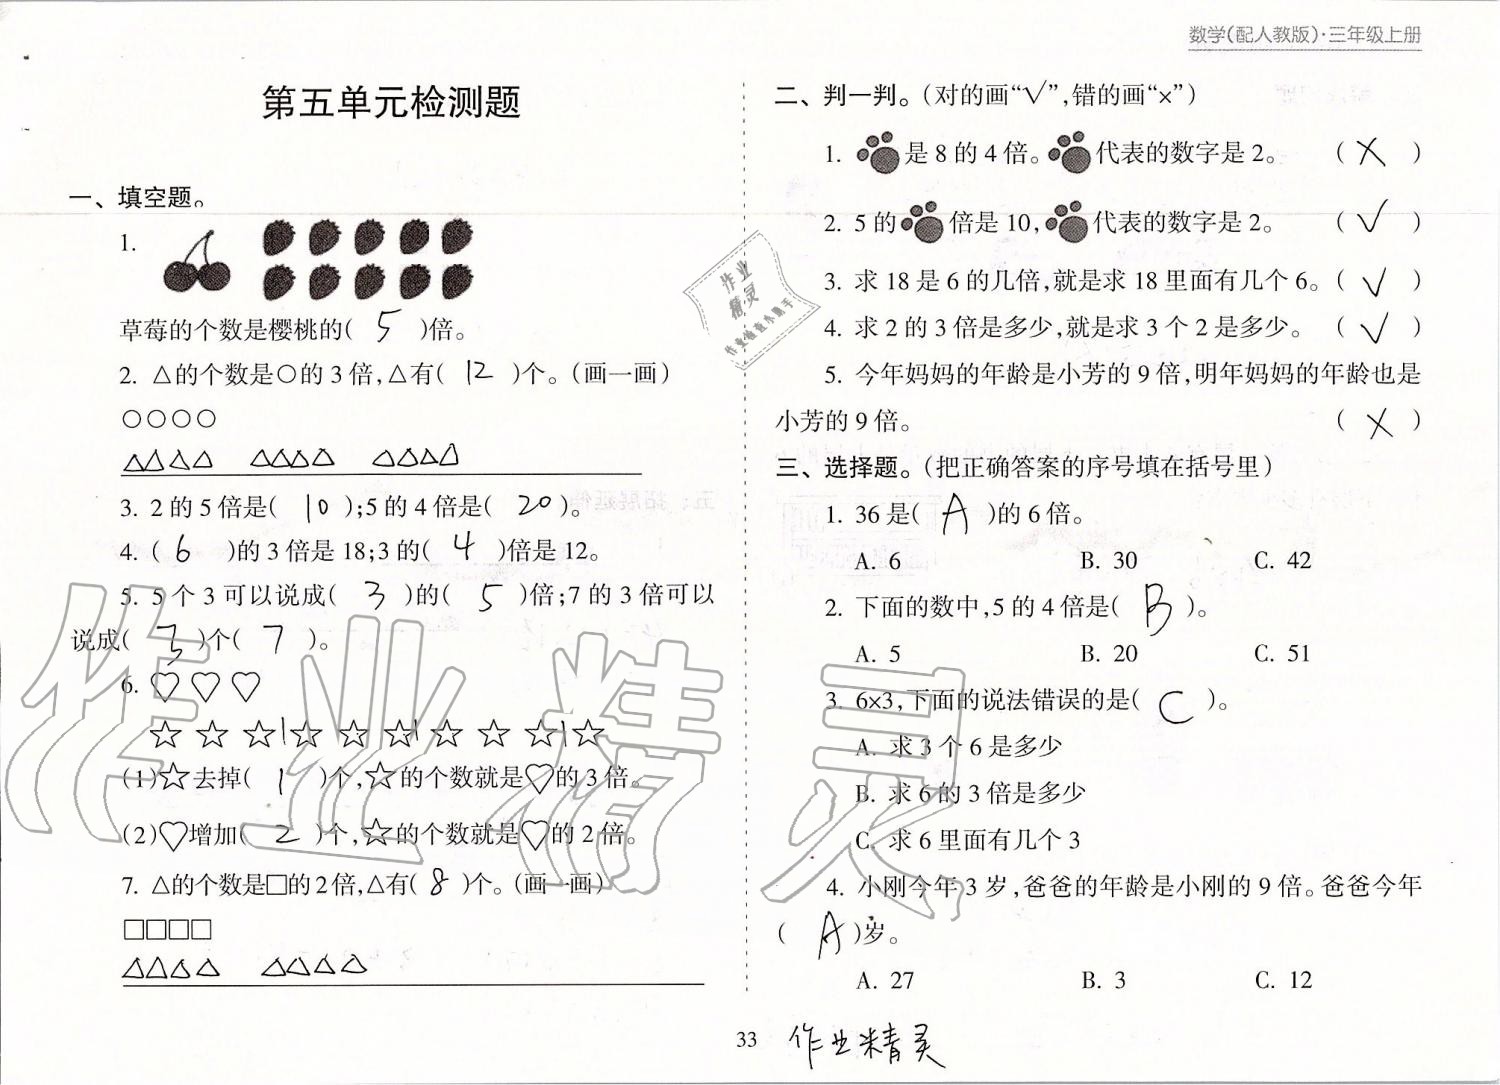 数学(配人教版)·三年级上册
第五单元检测题
一、填空题。
1.
草莓的个数是樱桃的( 5 )倍。
2. △的个数是○的3倍,△有( 12 )个。(画一画)
○○○○
△△△△ △△△△ △△△△
3. 2的5倍是( 10 );5的4倍是( 20 )。
4. ( 6 )的3倍是18;3的( 4 )倍是12。
5. 5个3可以说成( 3 )的( 5 )倍;7的3倍可以
说成( 3 )个( 7 )。
6. ♡♡♡
☆☆☆☆☆☆☆☆☆☆
(1)☆去掉( 1 )个,☆的个数就是♡的3倍。
(2)♡增加( 2 )个,☆的个数就是♡的2倍。
7. △的个数是□的2倍,△有( 8 )个。(画一画)
□□□□
△△△△ △△△△
二、判一判。(对的画“√”,错的画“×”)
1. 是8的4倍。代表的数字是2。 ( × )
2. 5的倍是10,代表的数字是2。 ( √ )
3. 求18是6的几倍,就是求18里面有几个6。( √ )
4. 求2的3倍是多少,就是求3个2是多少。 ( √ )
5. 今年妈妈的年龄是小芳的9倍,明年妈妈的年龄也是
小芳的9倍。 ( × )
三、选择题。(把正确答案的序号填在括号里)
1. 36是( A )的6倍。
A. 6 B. 30 C. 42
2. 下面的数中,5的4倍是( B )。
A. 5 B. 20 C. 51
3. 6×3,下面的说法错误的是( C )。
A. 求3个6是多少
B. 求6的3倍是多少
C. 求6里面有几个3
4. 小刚今年3岁,爸爸的年龄是小刚的9倍。爸爸今年
( A )岁。
A. 27 B. 3 C. 12
33
作业精灵
作业精灵
作业精灵